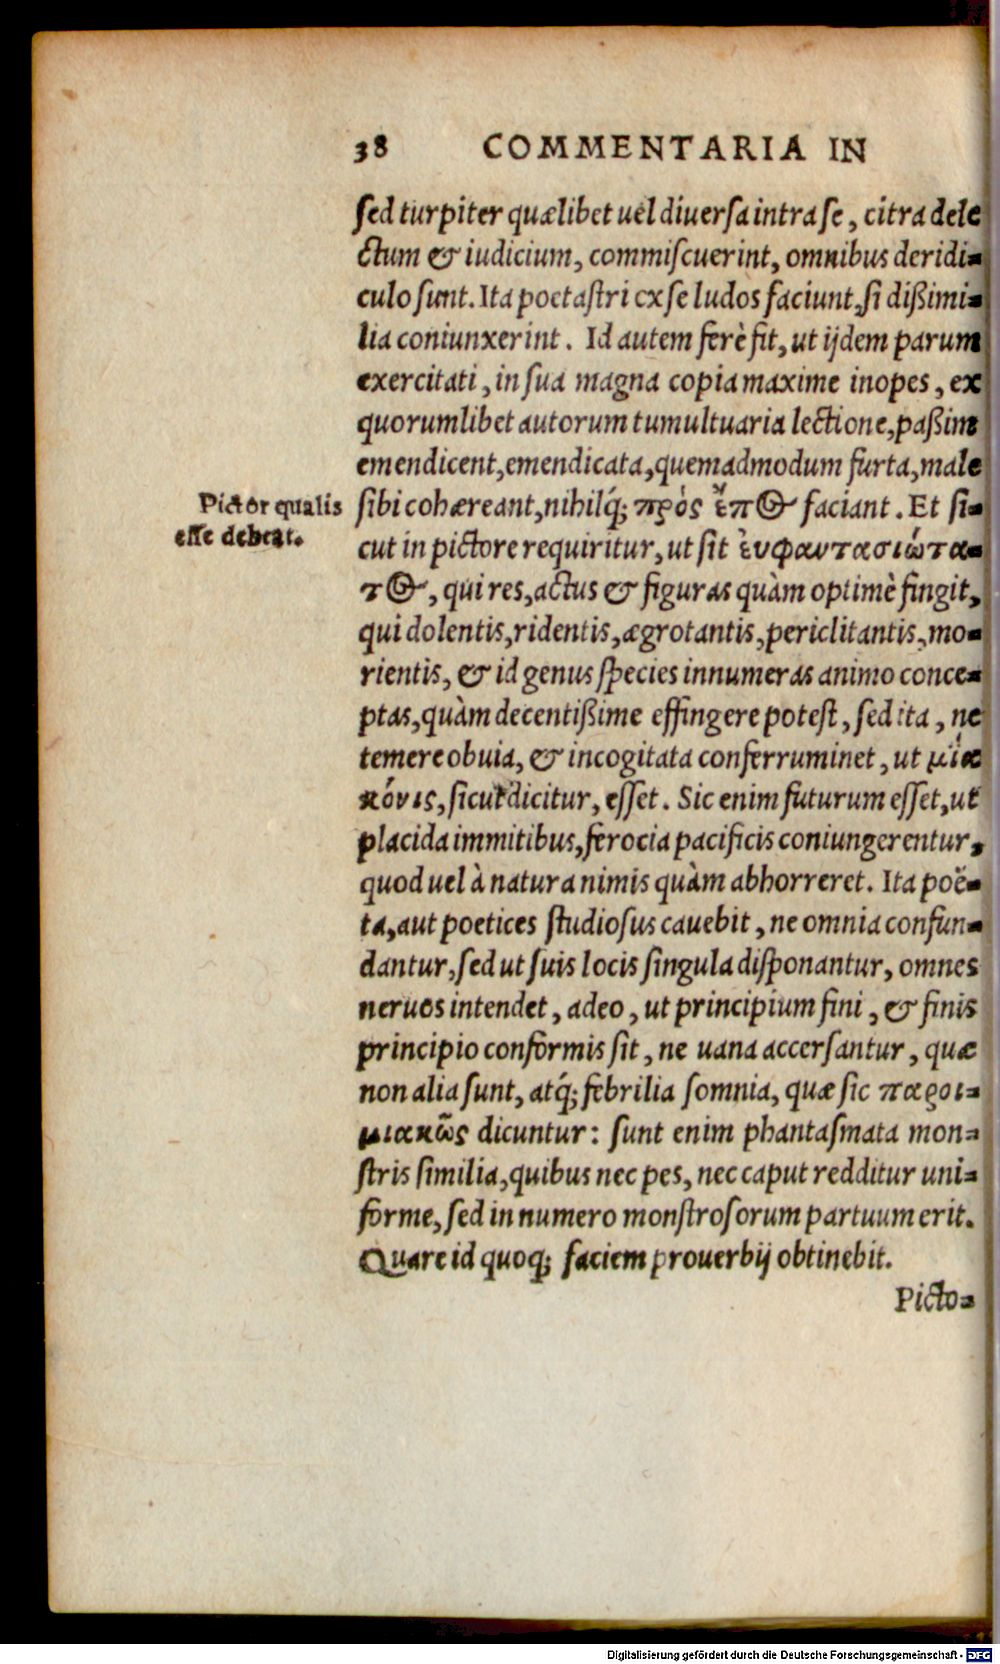 38 COMMENTARIA IN
sed turpiter quælibet uel diuersa intra se, citra dele
ctum & iudicium, commiscuerint, omnibus deridi-
culo sunt. Ita poetastri ex se ludos faciunt, si dißimi-
lia coniunxerint. Id autem ferè fit, ut ijdem parum
exercitati, in sua magna copia maxime inopes, ex
quorumlibet autorum tumultuaria lectione, paßim
emendicent, emendicata, quemadmodum furta, male
Pictor qualis
esse debeat.
sibi cohæreant, nihilq́; πρός ἔπος faciant. Et si-
cut in pictore requiritur, ut sit ἐυφαντασιώτα-
τος, qui res, actus & figuras quàm optimè fingit,
qui dolentis, ridentis, ægrotantis, periclitantis, mo-
rientis, & id genus species innumeras animo conce-
ptas, quàm decentißime effingere potest, sed ita, ne
temere obuia, & incogitata conferruminet, ut μία
κόνις, sicut dicitur, esset. Sic enim futurum esset, ut
placida immitibus, ferocia pacificis coniungerentur,
quod uel à natura nimis quàm abhorreret. Ita poë-
ta, aut poetices studiosus cauebit, ne omnia confun-
dantur, sed ut suis locis singula disponantur, omnes
neruos intendet, adeo, ut principium fini, & finis
principio conformis sit, ne uana accersantur, quæ
non alia sunt, atq́; febrilia somnia, quæ sic παροι-
μιακῶς dicuntur: sunt enim phantasmata mon-
stris similia, quibus nec pes, nec caput redditur uni-
forme, sed in numero monstrosorum partuum erit.
Quare id quoq; faciem prouerbij obtinebit.
Picto-
Digitalisierung gefördert durch die Deutsche Forschungsgemeinschaft - DFG